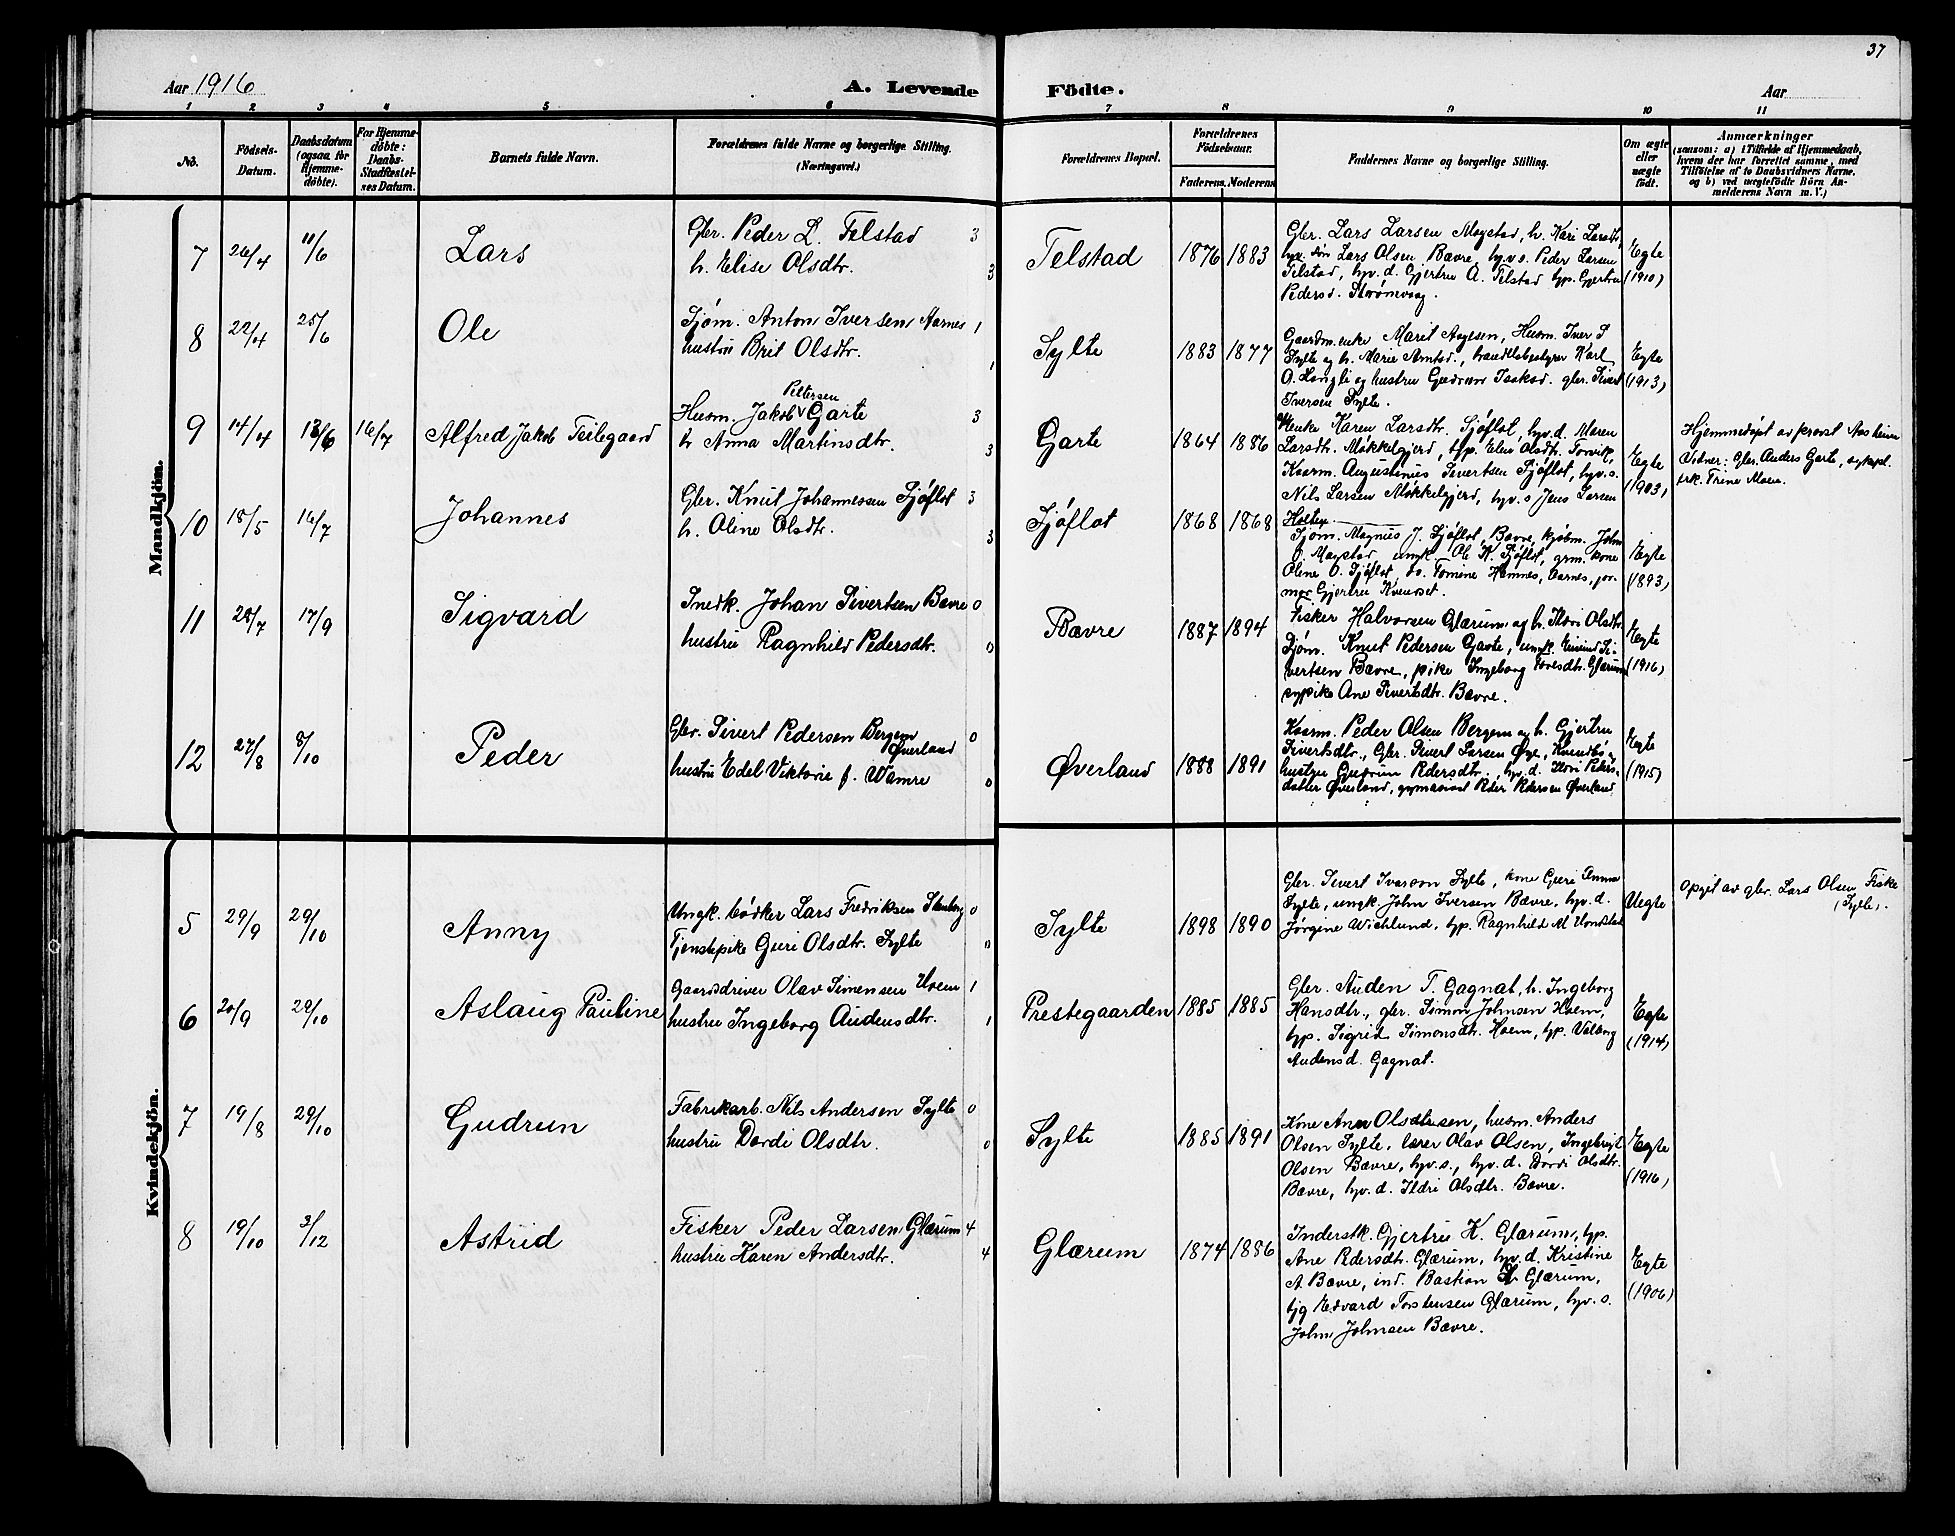 37
Aar 1916
A. Levende Födte.
Aar
1 2 3 4 5 6 7 8 9 10 11
No.
Födsels-
Datum.
Daabsdatum
(ogsaa for
Hjemme-
döbte).
For Hjemme-
döbte:
Daabs-
Stadfæstel-
ses Datum.
Barnets fulde Navn.
Forældrenes fulde Navne og borgerlige Stilling.
(Næringsvei.)
Forældrenes Bopæl.
Forældrenes
Födselsaar.
Faderens. Moderens.
Faddernes Navne og borgerlige Stilling.
Om ægte
eller
uægte
født.
Anmærkninger
(saasom: a) i Tilfælde af Hjemmedaab,
hvem der har forrettet samme, med
Tilføielse af to Daabsvidners Navne.
og b) ved uægtefödte Börn An-
melderens Navn m. V.)
Mandkjön.
7 26/4 11/6 Lars
Gbr. Peder L. Telstad 3
h. Elise Olsdtr. 3
Telstad 1876 1883
Gbr. Lars Larsen Magstad, h. Kari Larsdtr,
Lars Olsen Bævre, hv. s. Peder Larsen
Telstad, hv. d. Gjertru A. Telstad hp. Gjertru
Pedersd. Strømsvaag.
Egte
(1910)
8 22/4 25/6 Ole
Sjöm. Anton Iversen Aarnes 1
hustru Brit Olsdtr. 1
Sylte 1883 1877
Gaardm. enke Marit Aagesen, Husm. Iver S
Sylte og h. Marie Arntsd., handelsbestyrer Karl
O. Langli og hustru Gudrun Isaksd. gbr. Sivert
Iversen Sylte.
Egte
(1913)
9 14/4 13/6 16/7 Alfred Jakob Teilegaard
Pettersen
Husm. Jakob Garte 3
h. Anna Martinsdtr. 3
Garte 1864 1886
Enke Karen Larsdtr. Sjöflot, hv. d. Maren
Larsdtr. Møkkelgjerd, hp. Elen Olsdtr. Torvik,
Kaarm. Augustinus Sivertsen Sjöflot, hv. s.
Nils Larsen Møkkelgjerd, hv. s. Jens Larsen
Holten
Egte
(1903)
Hjemmedøpt av provst Aasheim
Vidner: Gbr. Anders Garte, sykepl.
frk. Trine Moen.
10 18/5 16/7 Johannes
Gbr. Knut Johannessen Sjöflot 3
h. Oline Olsdtr. 3
Sjöflot 1868 1868
Sjöm. Magnus J. Sjöflot, Bævre, kjøbm. John
J. Magstad, ungk. Ole K. Sjöflot, grm. kone
Oline O. Sjöflot, Tomine Hamnes, Aarnes, jor-
mor Gjertru Kvendset.
Egte
(1893)
11 28/7 17/9 Sigvard
Snedk. Johan Sivertsen Bævre 0
hustru Ragnhild Pedersdtr. 0
Bævre 1887 1894
Fisker Halvorsen Glærum og h. Ildri Olsdtr
Sjöm. Knut Pedersen Garte, ungk. Eivind Si-
vertsen Bævre, pike Ingeborg Toresdtr. Glærum
sypike Ane Sivertsdtr. Bævre.
Egte
(1916)
12 27/8 8/10 Peder
Gbr. Sivert Pedersen Bergem
Øverland 0
hustru Edel Viktorie f. Wamre 0
Øverland 1888 1891
Kaarm. Peder Olsen Bergem og h. Gjertru
Sivertsdtr., Gbr. Sivert Larsen Øye, Kvendbø
hustru Gudrun Pedersdtr., hv. d. Ildri Peders-
datter Øverland, gymnasiast Peder Pedersen Øverland
Egte
(1915)
Kvindekjön.
5 29/9 29/10 Anny
Ungk. bødker Lars Fredriksen Stenberg 0
Tjenestepike Guri Olsdtr. Sylte 0
Sylte 1898 1890
Gbr. Sivert Ivarson Sylte, kone Guri
Sylte, ungk. John Iversen Bævre, hv. d.
Jørgine Wichlund, hp. Ragnhild M.
Uegte
Opgit av gbr. Lars Olsen Fiske
(Sylte).
6 20/9 29/10 Aslaug Pauline
Gaardsdriver Olav Simensen Hoem 1
hustru Ingeborg Audensdtr. 1
Prestegaarden 1885 1885
Gbr. Auden T. Gagnat, h. Ingeborg
Hansdtr., gbr. Simon Johnsen Hoem,
hp. Sigrid Simonsdtr. Hoem, hp. Valborg
Audensd. Gagnat.
Egte
(1914)
7 19/8 29/10 Gudrun
Fabrikarb. Nils Andersen Sylte 0
hustru Dordi Olsdtr. 0
Sylte 1885 1891
Kone Ane Olsdtrsen, husm. Anders
Olsen Sylte, lærer Olav Olsen, Ingebrigt
Olsen Bævre, hv. s., hv. d. Dordi Olsdtr.
Bævre, hv. d. Ildri Olsdtr. Bævre.
Egte
(1916)
8 19/10 3/12 Astrid
Fisker Peder Larsen Glærum 4
hustru Karen Andersdtr. 4
Glærum 1874 1886
Inderstk. Gjertru K. Glærum, hp.
Ane Pedersdtr. Glærum, hv. d. Kristine
A Bævre, ind. Bastian Glærum,
tjg Edvard Torstensen Glærum, hv. s.
John Johnsen Bævre.
Egte
(1906)